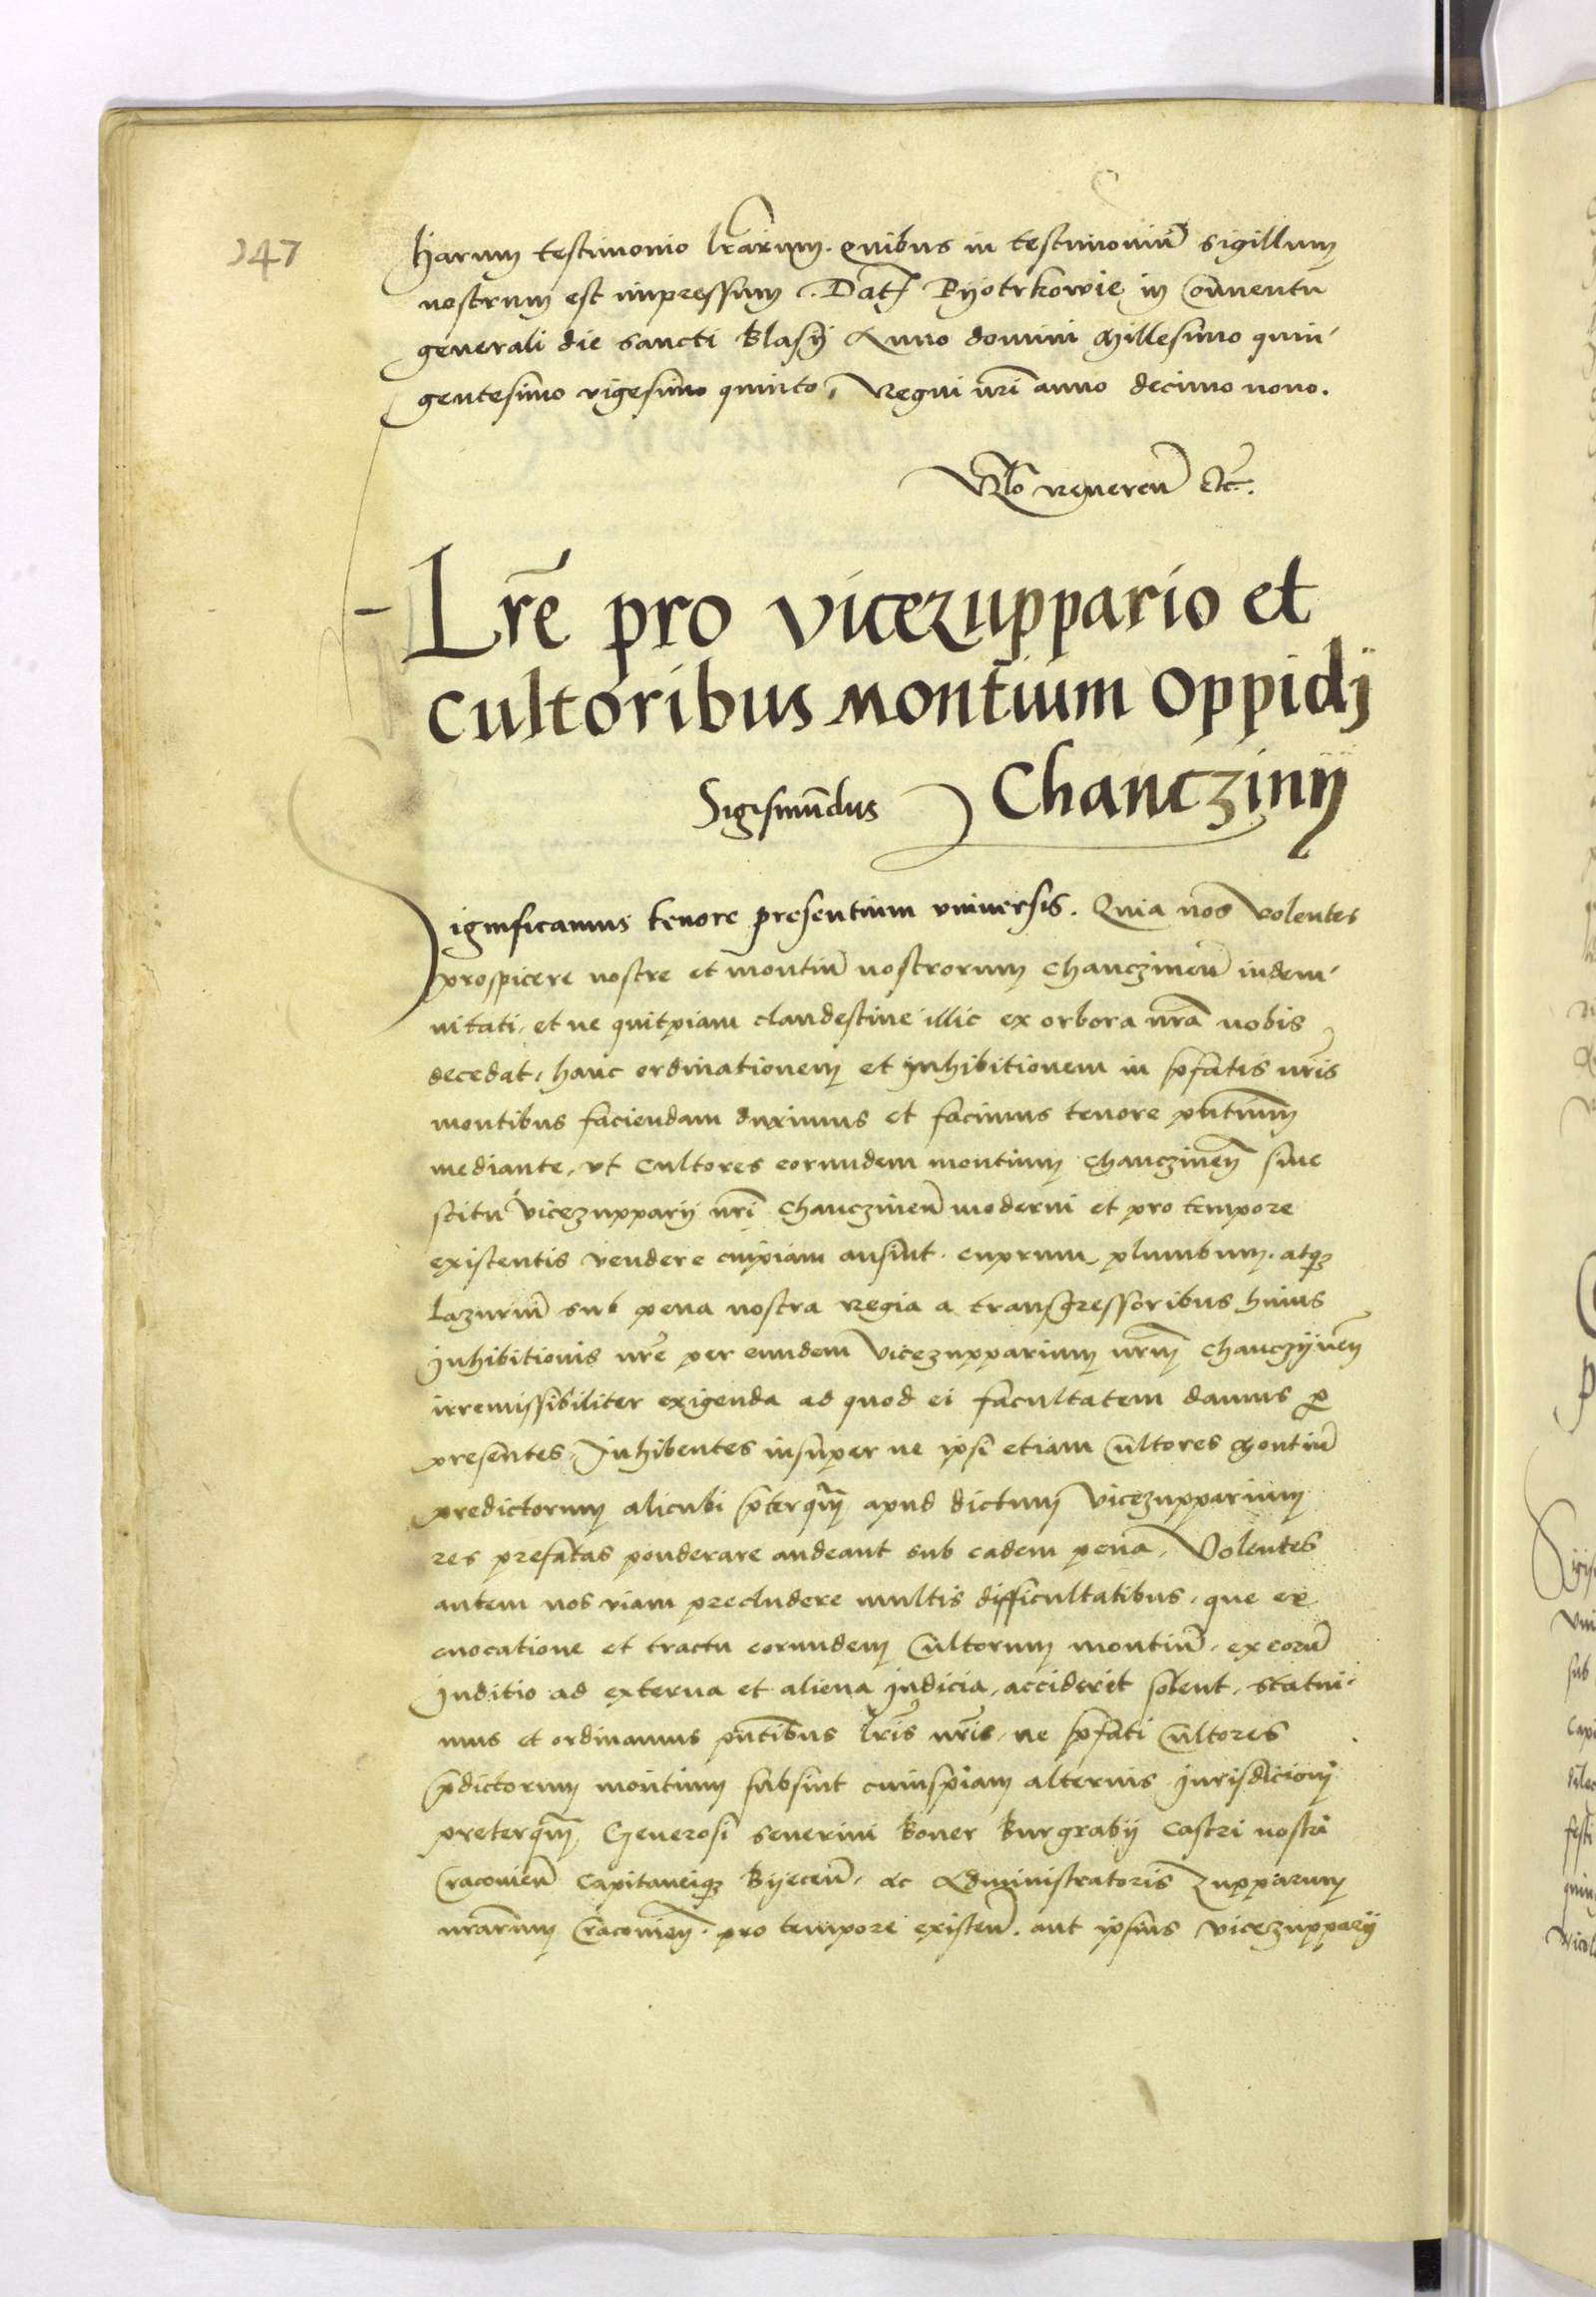 147
harum testimonio lrarum. quibus in testimoniũ sigillum
nostrum est impressum. Datũ Pyotrkowie in Conuentu
generali die sancti Blasij Anno domini Millesimo quin-
gentesimo vigesimo quinto, Regni nri anno decimo nono.
Rlo reuerenđ etc.
Lrẽ pro vicezuppario et
cultoribus montium oppidj
Chanczinij
Sigismũdus
Significamus tenore presentium vniuersis. Quia nos volentes
prospicere nostre et montiũ nostrorum Chanczineñ indem-
nitati, et ne quitpiam clandestine illic ex orbora nra nobis
decedat, hanc ordinationem et inhibitionem in pfatis nris
montibus faciendam duximus et facimus tenore pntium
mediante, vt cultores eorundem montium Chanczineñ sine
scitu vicezupparij nri Chanczineñ moderni et pro tempore
existentis vendere cuipiam ausint. cuprum, plumbum. atqz
Lazuriũ sub pena nostra regia a transgressoribus huius
inhibitionis nre per eundem vicezupparium nrum Chanczyneñ
irremissibiliter exigenda ad quod ei facultatem damus p
presentes, Inhibentes insuper ne ipsi etiam cultores Montiũ
predictorum alicubi pterqm apud dictum vicezupparium
res prefatas ponderare audeant sub eadem pena, Volentes
autem nos viam precludere multis difficultatibus, que ex
euocatione et tractu eorundem cultorum montiũ, ex eorũ
Inditio ad externa et aliena Indicia, acciderit solent, statui-
mus et ordinamus pntibus lris nris, ne pfati cultores
pdictorum montium subsint cuiuspiam alterius jurisdicioni
preterqm Generosi Seuerini Boner Burgrabij Castri nostri
Cracouieñ Capitaneiqz Byeceñ, ac Administratoris Zupparum
nrarum Cracouieñ. pro tempore existeñ. aut ipsius vicezupparij